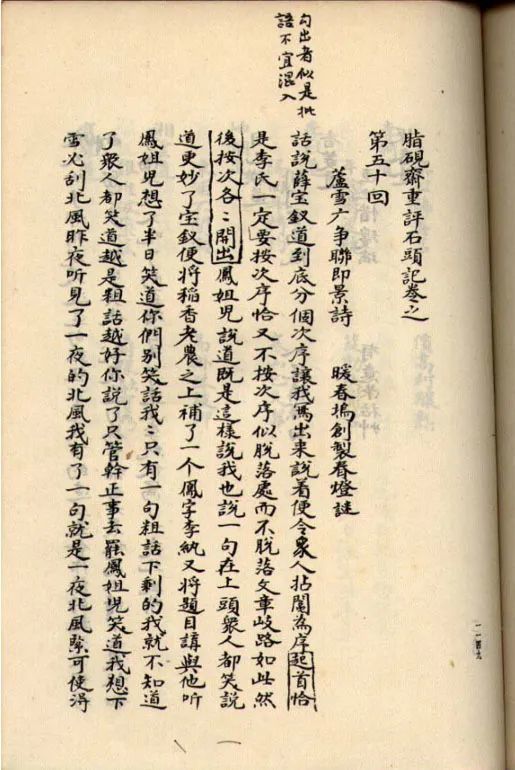 句出者似是批
語不宜混入
脂硯齋重評石頭記卷之
第五十回
蘆雪广争聯即景詩　暖春塢創製春燈謎
話說薛宝釵道到底分個次序讓我寫出来說着便令衆人拈鬮為序起首恰
是李氏一定要按次序恰又不按次序似脱落處而不脱落文章歧路如此然
後按次各〻開出鳳姐児說道既是這樣說我也說一句在上頭衆人都笑說
道更妙了宝釵便將稻香老農之上補了一个鳳字李紈又將題目講與他听
鳳姐児想了半日笑道你們别笑話我〻只有一句粗話下剩的我就不知道
了衆人都笑道越是粗話越好你說了只管幹正事去罷鳳姐児笑道我想下
雪必刮北風昨夜听見了一夜的北風我有了一句就是一夜北風緊可使得
一一四九